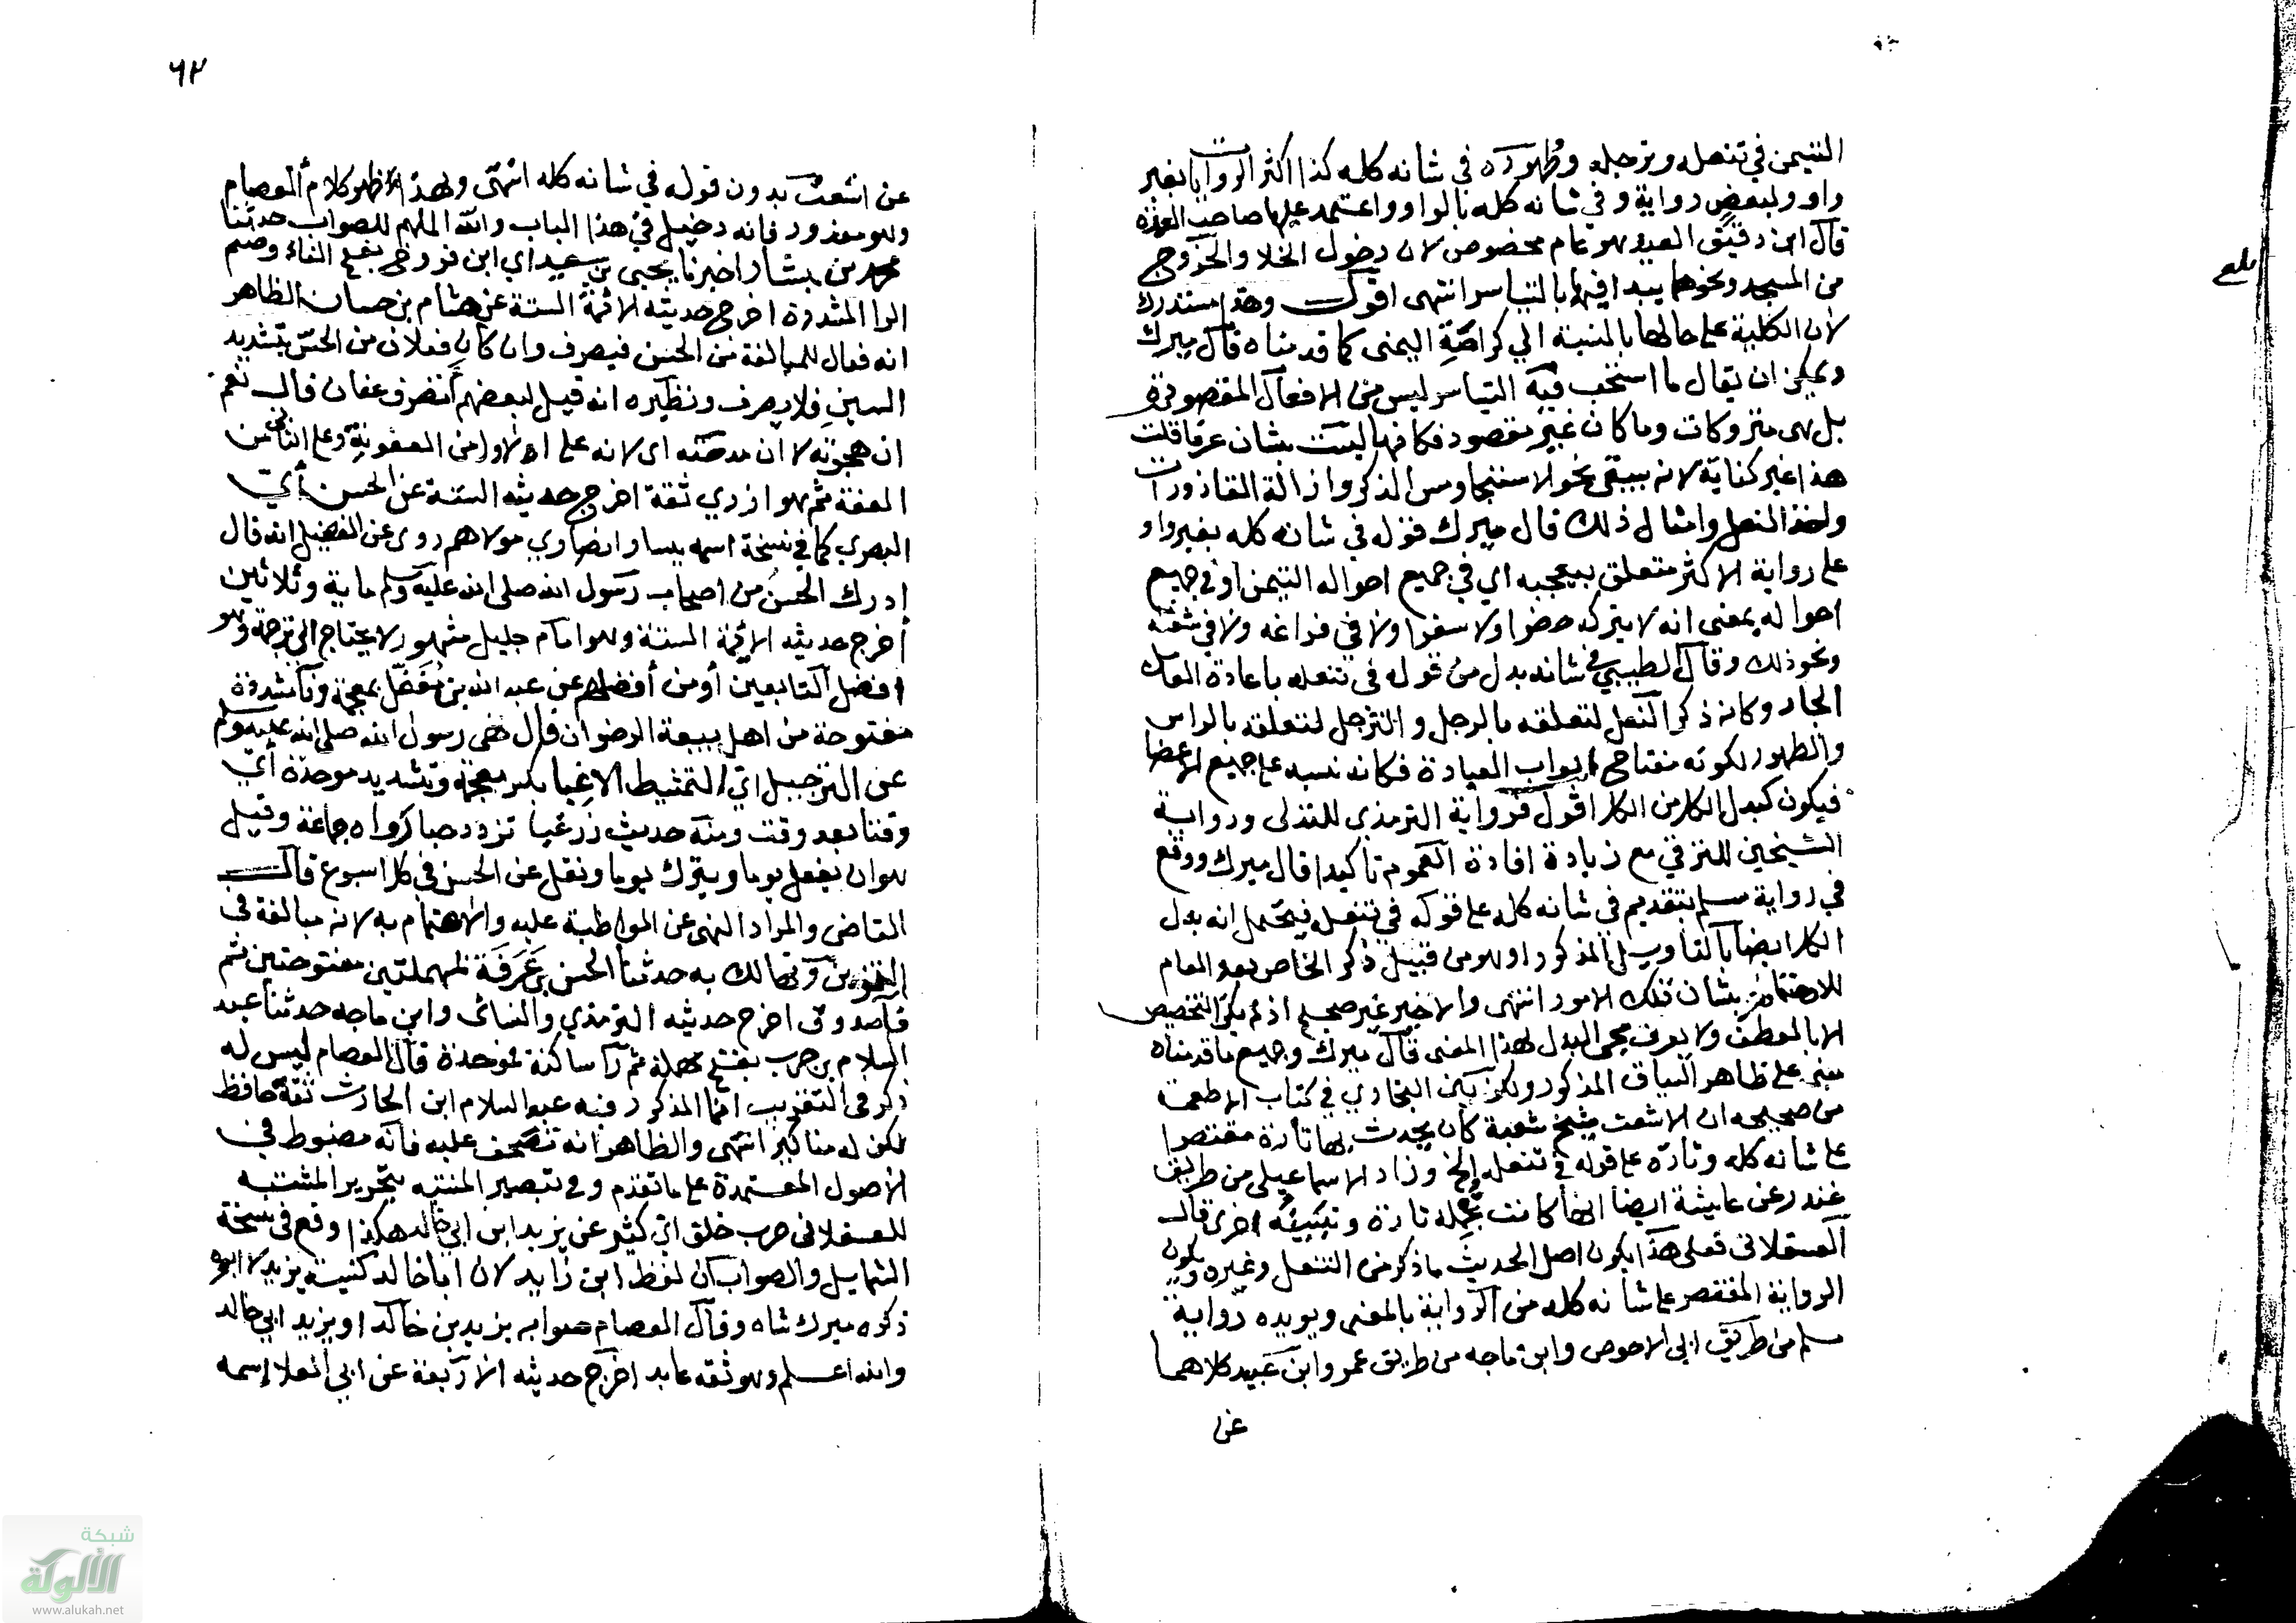 التيمن في تنعله وترجله وطهوره في شانه كله كذا اكثر الروايات بغير
واو ولبعض رواية وفي شانه كله بالواو واعتمد عليها صاحب العمدة
قال ابن دقيق العيد وهو عام مخصوص لان دخول الخلا والخروج
من المسجد ونحوهما يبدا فيها بالتياسر انتهى اقول وهذا مستدرك
لان الكلية على حالها بالنسبة الي كراهة اليمنى كما قدمناه قال ميرك
ويمكن ان يقال ما استحب فيه التياسر ليس من الافعال المقصودة
بل هى متروكات وما كان غير مقصود فكانها ليست بشان عرفا قلت
هذا غير كفاية لانه يبقى نحو الاستنجا ومس الذكر وازالة القاذورات
واخذ النعل وامثال ذلك قال ميرك قوله في شانه كله بغير واو
على رواية الاكثر متعلق بيعجبه اي في جميع احواله التيمن او في جميع
احواله بمعنى انه لا يتركه حضرا ولا سفرا ولا في فراغه ولا في شغله
ونحو ذلك وقال الطيبي في شانه بدل من قوله في تنعله باعادة العامل
الجار وكانه ذكر النعل لتعلقه بالرجل والترجل لتعلقه بالراس
والطهور لكونه مفتاح ابواب العبادة فكانه نبه على جميع الاعضا
فيكون كبدل الكل من الكل اقول فرواية الترمذي للتدلى ورواية
الشيخين للترقي مع زيادة افادة العموم تاكيدا قال ميرك ووقع
في رواية مسلم بتقديم في شانه كله على قوله في تنعله فيحتمل انه بدل
الكل ايضا بالتاويل المذكور او هو من قبيل ذكر الخاص بعد العام
للاهتمام بشان تلك الامور انتهى والاخير غير صحيح اذ لم يكن التخصيص
الا بالعطف ولا يعرف مجى البدل لهذا المعنى قال ميرك وجميع ما قدمناه
مبنى على ظاهر السياق المذكور ولكن بين البخاري في كتاب الاطعمة
من صحيحه ان الاشعث شيخ شعبة كان يحدث بها تارة مقتصرا
على شانه كله وتارة على قوله في تنعله الخ وزاد الاسماعيلى من طريق
غندر عن عايشة ايضا انها كانت تجمله تارة وتبينه اخرى قال
العسقلانى فعلى هذا يكون اصل الحديث ما ذكر من التنعل وغيره ويكون
الرواية المقتصر على شانه كله من الرواية بالمعنى ويويده رواية
مسلم من طريق ابى الاحوص وابن ماجه من طريق عمرو ابن عبيد كلاهما
عن
٦٢
عن اشعث بدون قوله في شانه كله انتهى وبهذا ظهر كلام العصام
وهو معذور فانه دخيل في هذا الباب والله الملهم للصواب حدثنا
محمد بن بشار اخبرنا يحيى بن سعيد اي ابن فروخ بفتح الفاء وضم
الرا المشددة اخرج حديثه الائمة الستة عن هشام بن حسان الظاهر
انه فعال للمبالغة من الحسن فيصرف وان كان فعلان من الحسّ بتشديد
السين فلا يصرف ونظيره انه قيل لبعضهم أتصرف عفان قال نعم
ان هجوته لا ان مدحته اي لانه على الاول من العفونة وعلى الثانى من
العفة ثم هو ازدي ثقة اخرج حديثه الستة عن الحسن أي
البصري كما في نسخة اسمه يسار انصاري مولاهم روى عن الفضيل انه قال
ادرك الحسن من اصحاب رسول الله صلى الله عليه وسلم ماية وثلاثين
أخرج حديثه الائمة الستة وهو امام جليل مشهور لا يحتاج الى ترجمة وهو
افضل التابعين أو من أفضلهم عن عبد الله بن مُغَفَّل بمعجمة وفا مشددة
مفتوحة من اهل بيعة الرضوان قال نهى رسول الله صلى الله عليه وسلم
عن الترجيل اي التمشيط الا غِبا بكسر معجمة وتشديد موحدة أي
وقتا بعد وقت ومنه حديث زر غبا تزدد حبا رواه جماعة وقيل
هو ان يفعل يوما ويترك يوما ونقل عن الحسن في كل اسبوع قال
القاضي والمراد النهى عن المواظبة عليه والاهتمام به لانه مبالغة فى
التزيين وتهالك به حدثنا الحسن بن عَرَفَة بمهملتين مفتوحتين ثم
فاء صدوق اخرج حديثه الترمذي والنسائى وابن ماجه حدثنا عبد
السلام بن حرب بفتح مهملة ثم را ساكنة بموحدة قال العصام ليس له
ذكر فى التقريب انما المذكور فيه عبد السلام ابن الحارث ثقة حافظ
لكن له مناكير انتهى والظاهر انه تصحف عليه فانه مضبوط في
الاصول المعتمدة على ما تقدم وفي تبصير المنتبه بتحرير المشتبه
للعسقلانى حرب خلق اي كثير عن يزيد ابن ابي خالد هكذا وقع في نسخة
الشمايل والصواب ان لفظ ابن زايد لان ابا خالد كنيت يزيد لا ابوه
ذكره ميرك شاه وقال العصام صوابه يزيد بن خالد او يزيد ابي خالد
والله اعلم وهو ثقة عابد اخرج حديثه الاربعة عن ابي العلا اسمه
شبكة
الألوكة
www.alukah.net